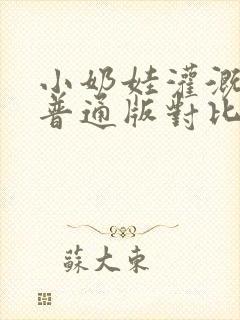 小奶娃灌溉
普通版對比
蘇大東